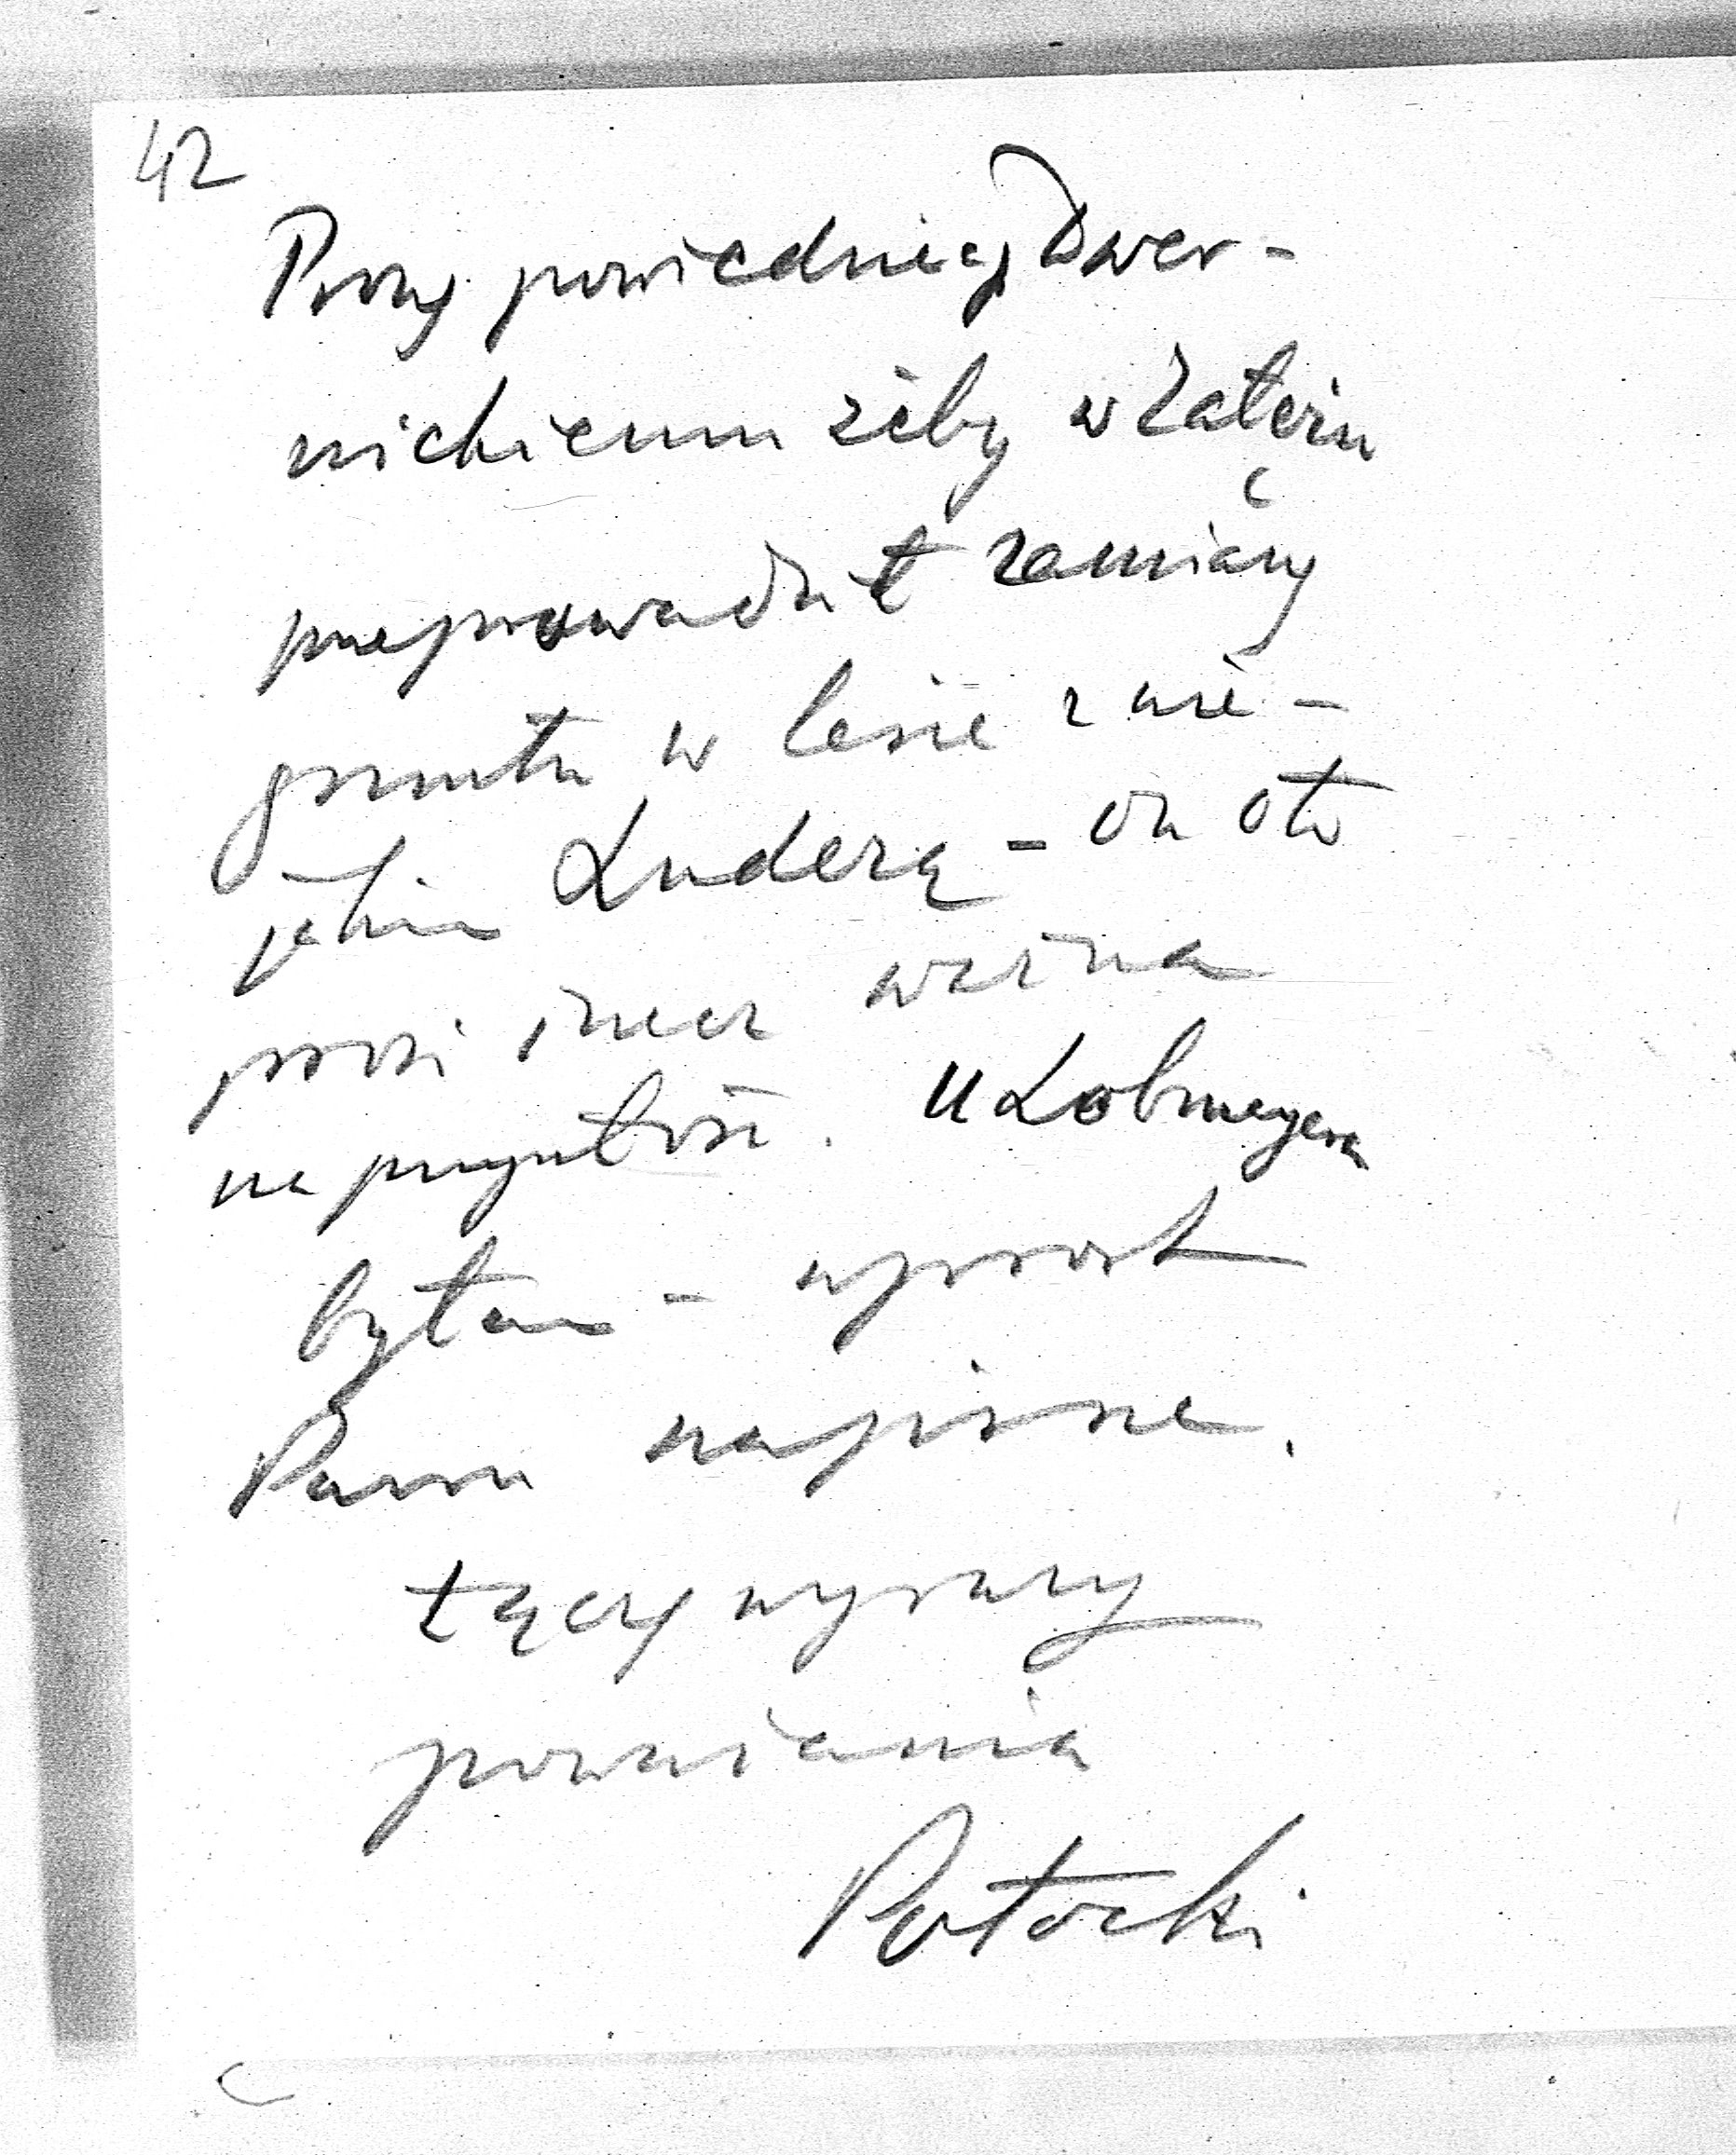 42
Proszę powiedzieć Dwer-
nickiemu żeby w Zatoru
przeprowadził zamianę
gruntu w lesie z nie-
jakim Luderą - on oto
prosi rzecz ważna
na przyszłość. U Lobmeyera
byłem - wprost
Panu napisze.
Łączę wyrazy
poważania
Potocki